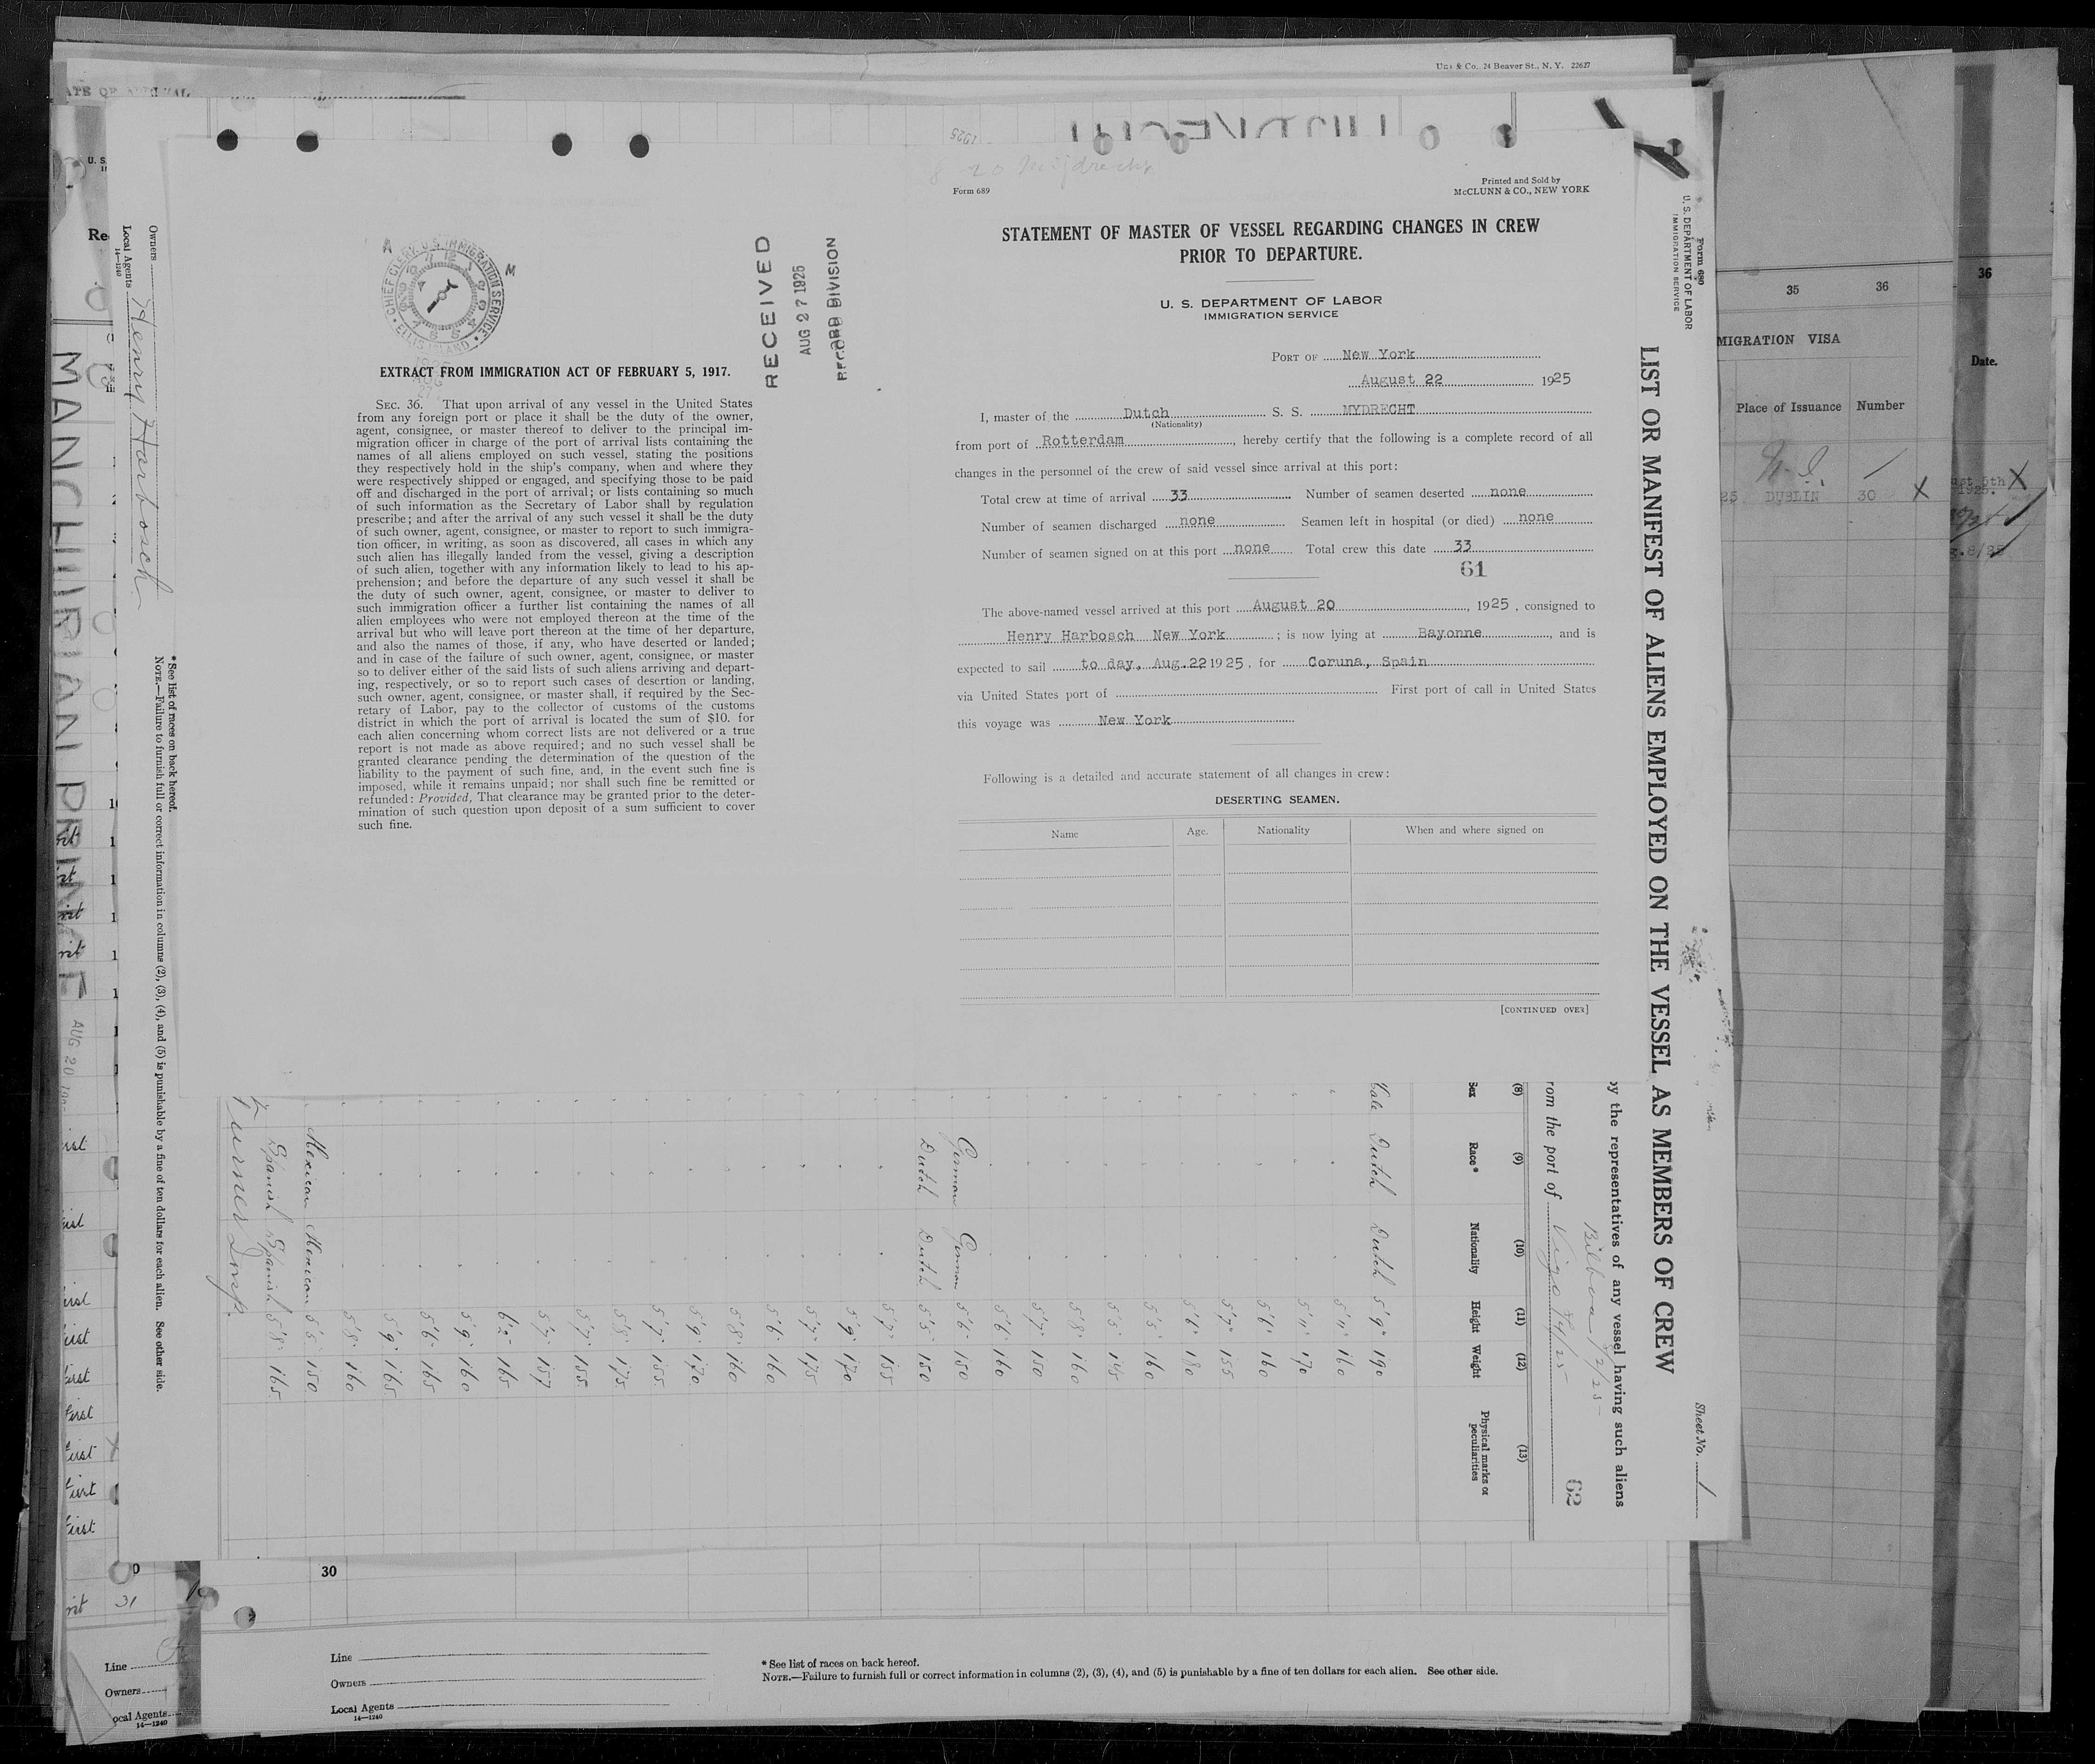 Form 689
Printed and Sold by
McCLUNN & CO., NEW YORK
STATEMENT OF MASTER OF VESSEL REGARDING CHANGES IN CREW
PRIOR TO DEPARTURE.
U. S. DEPARTMENT OF LABOR
IMMIGRATION SERVICE
PORT OF New York
August 22 1925
I, master of the Dutch S. S. MYDRECHT
(Nationality)
from port of Rotterdam, hereby certify that the following is a complete record of all
changes in the personnel of the crew of said vessel since arrival at this port:
Total crew at time of arrival 33 Number of seamen deserted none
Number of seamen discharged none Seamen left in hospital (or died) none
Number of seamen signed on at this port none Total crew this date 33
61
The above-named vessel arrived at this port August 20, 1925, consigned to
Henry Harbosch New York; is now lying at Bayonne, and is
expected to sail to day, Aug. 22 1925, for Coruna, Spain
via United States port of First port of call in United States
this voyage was New York
Following is a detailed and accurate statement of all changes in crew:
DESERTING SEAMEN.
Name Age. Nationality When and where signed on
[CONTINUED OVER]
CHIEF CLERK, U.S. IMMIGRATION SERVICE
ELLIS ISLAND
A M
RECEIVED
AUG 27 1925
RECORD DIVISION
EXTRACT FROM IMMIGRATION ACT OF FEBRUARY 5, 1917.
SEC. 36. That upon arrival of any vessel in the United States
from any foreign port or place it shall be the duty of the owner,
agent, consignee, or master thereof to deliver to the principal im-
migration officer in charge of the port of arrival lists containing the
names of all aliens employed on such vessel, stating the positions
they respectively hold in the ship's company, when and where they
were respectively shipped or engaged, and specifying those to be paid
off and discharged in the port of arrival; or lists containing so much
of such information as the Secretary of Labor shall by regulation
prescribe; and after the arrival of any such vessel it shall be the duty
of such owner, agent, consignee, or master to report to such immigra-
tion officer, in writing, as soon as discovered, all cases in which any
such alien has illegally landed from the vessel, giving a description
of such alien, together with any information likely to lead to his ap-
prehension; and before the departure of any such vessel it shall be
the duty of such owner, agent, consignee, or master to deliver to
such immigration officer a further list containing the names of all
alien employees who were not employed thereon at the time of the
arrival but who will leave port thereon at the time of her departure,
and also the names of those, if any, who have deserted or landed;
and in case of the failure of such owner, agent, consignee, or master
so to deliver either of the said lists of such aliens arriving and depart-
ing, respectively, or so to report such cases of desertion or landing,
such owner, agent, consignee, or master shall, if required by the Sec-
retary of Labor, pay to the collector of customs of the customs
district in which the port of arrival is located the sum of $10. for
each alien concerning whom correct lists are not delivered or a true
report is not made as above required; and no such vessel shall be
granted clearance pending the determination of the question of the
liability to the payment of such fine, and, in the event such fine is
imposed, while it remains unpaid; nor shall such fine be remitted or
refunded: Provided, That clearance may be granted prior to the deter-
mination of such question upon deposit of a sum sufficient to cover
such fine.
Form 680
U. S. DEPARTMENT OF LABOR
IMMIGRATION SERVICE
Sheet No. 1
LIST OR MANIFEST OF ALIENS EMPLOYED ON THE VESSEL AS MEMBERS OF CREW
by the representatives of any vessel having such aliens
Bilbao 8/2/25
rom the port of Vigo 8/4/25
62
(8) (9) (10) (11) (12) (13)
Sex Race* Nationality Height Weight Physical marks or peculiarities
Dutch Dutch 5'9" 190
5'11" 160
5'11" 170
5'6" 160
5'7" 155
5'6" 180
5'5" 160
5'5" 145
5'8" 160
5'7" 150
5'6" 160
German German 5'6" 150
Dutch Dutch 5'5" 150
5'7" 155
5'9" 170
5'7" 175
5'6" 160
5'8" 160
5'9" 170
5'7" 155
5'8" 175
5'7" 155
5'7" 157
6'2" 165
5'9" 160
5'6" 165
5'9" 165
5'8" 160
Mexican Mexican 5'5" 150
Spanish Spanish 5'8" 165
Turner Insp.
*See list of races on back hereof.
NOTE.—Failure to furnish full or correct information in columns (2), (3), (4), and (5) is punishable by a fine of ten dollars for each alien. See other side.
Owners
Local Agents Henry Harbosch
14—1240
MANCHURIAN PRINCE
AUG 20
35 36
MIGRATION VISA
Place of Issuance Number
25 DUBLIN 30 X
36
Date.
1925.
24 Beaver St., N. Y. 22627
30
31
Line
Owners
Local Agents
14—1240
* See list of races on back hereof.
NOTE.—Failure to furnish full or correct information in columns (2), (3), (4), and (5) is punishable by a fine of ten dollars for each alien. See other side.
Line
Owners
ocal Agents
14—1240